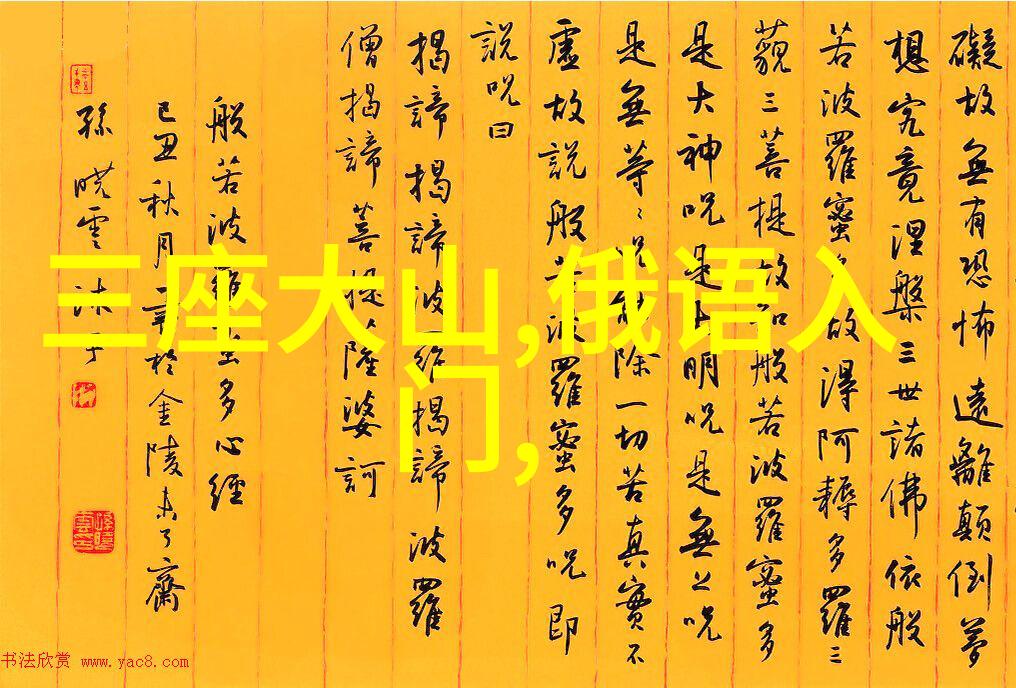 礙故無有恐怖遠離顛倒夢
想究竟涅槃三世諸佛依般
若波羅蜜多故得阿耨多羅三
藐三菩提故知般若波羅蜜多
是大神呪是大明呪是無上呪
是無等〻呪能除一切苦真實不
虛故說般若波羅蜜多呪即
說呪曰
揭諦揭諦波羅揭諦波羅
僧揭諦菩提薩婆訶
般若波羅蜜多心經
己丑秋月於金陵未了齋
孫曉雲沐手
三座大山,俄语入
门,
书法欣赏 www.yac8.com